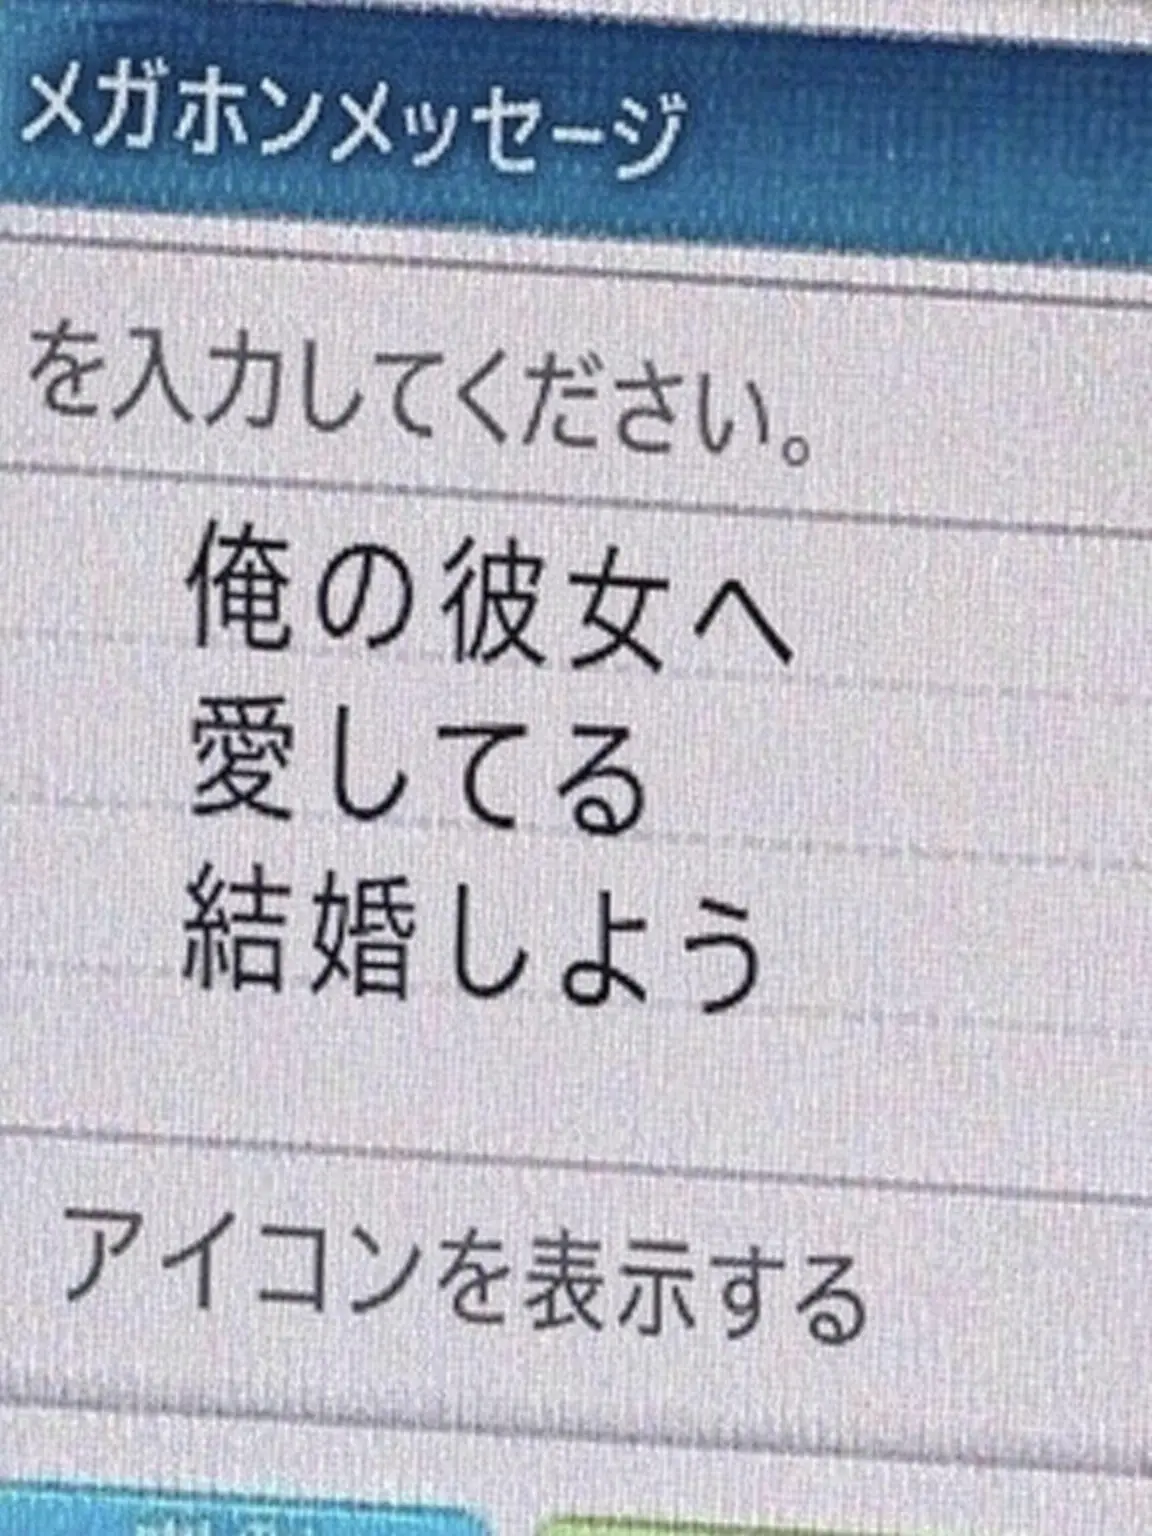 メガホンメッセージ
を入力してください。
俺の彼女へ
愛してる
結婚しよう
アイコンを表示する